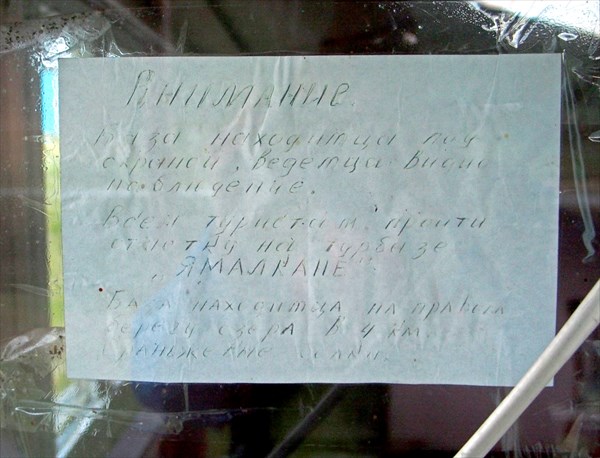 Внимание.
База находитца под
охраной, ведетца видио
наблюдение.
Всем туристам пройти
отметку на турбазе
„ЯМАЛКАПЕ"
База находитца на правом
берегу озера в 4 км.